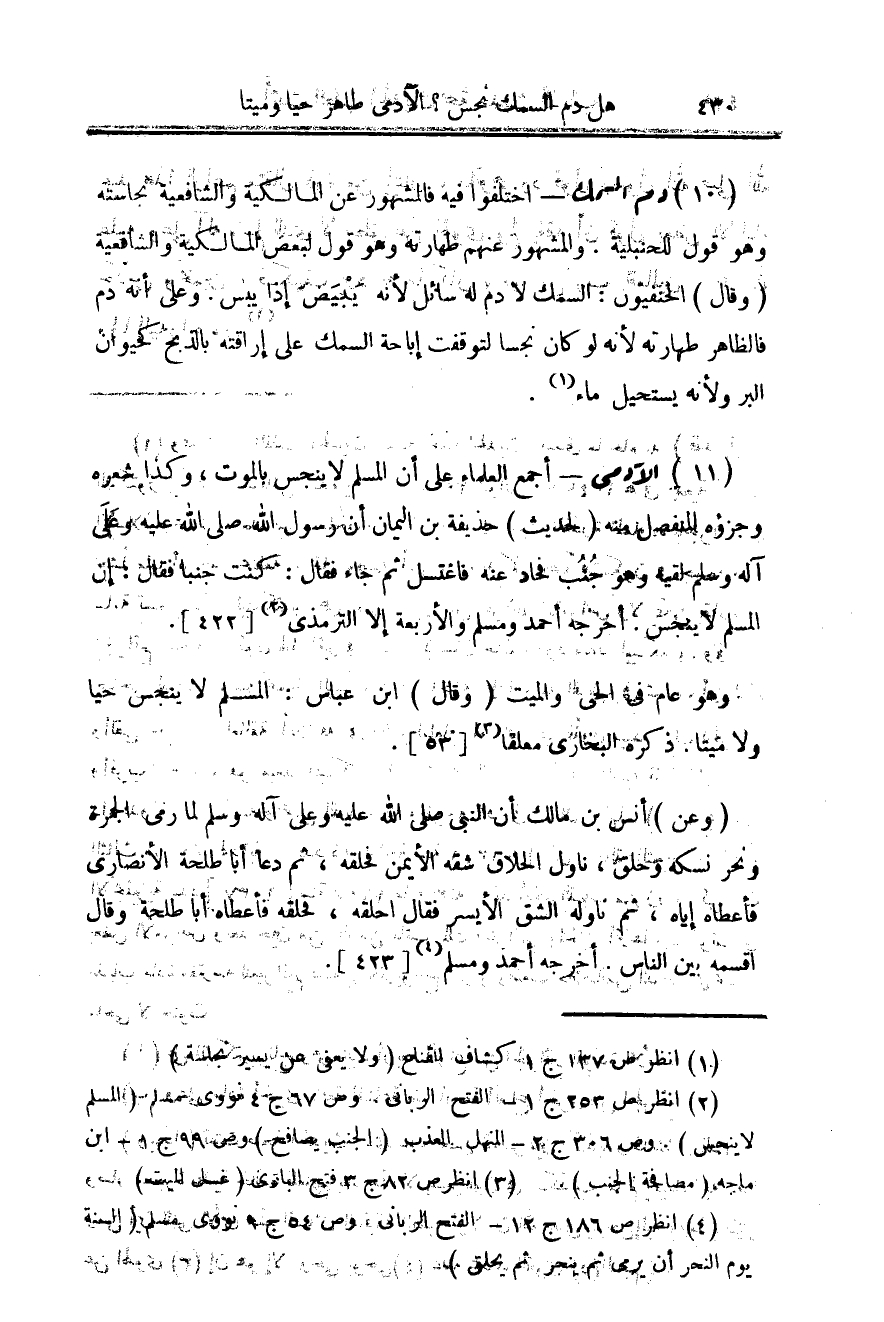 ٤٣٠ هل دم السمك نجس ؟ الآدمى طاهر حيا وميتا
( ١٠ ) دم السمك — اختلفوا فيه فالمشهور عن المالكية والشافعية نجاسته
وهو قول للحنبلية . والمشهور عنهم طهارته وهو قول لبعض المالكية والشافعية
( وقال ) الحنفيون : السمك لا دم له سائل لأنه يَبْيَض إذا يبس . وعلى أنه دم
فالظاهر طهارته لأنه لو كان نجسا لتوقفت إباحة السمك على إراقته بالذبح كحيوان
البر ولأنه يستحيل ماء(١) .
( ١١ ) الآدمى — أجمع العلماء على أن المسلم لا ينجس بالموت ، وكذا شعره
وجزؤه المنفصل منه ( لحديث ) حذيفة بن اليمان أن رسول الله صلى الله عليه وعَلَى
آله وسلم لقيه وهو جُنُب فحاد عنه فاغتسل ثم جاء فقال : كنت جنبا فقال : إن
المسلم لا ينجس . أخرجه أحمد ومسلم والأربعة إلا الترمذى(٢) [ ٤٢٢ ] .
وهو عام فى الحى والميت ( وقال ) ابن عباس : المسلم لا ينجس حيا
ولا ميتا . ذكره البخارى معلقا(٣) [ ٥٣ ] .
( وعن ) أنس بن مالك أن النبى صلى الله عليه وعلى آله وسلم لما رمى الجمرة
ونحر نسكه وحلق ، ناول الحلاق شقه الأيمن فحلقه ، ثم دعا أبا طلحة الأنصارى
فأعطاه إياه ، ثم ناوله الشق الأيسر فقال احلقه ، فحلقه فأعطاه أبا طلحة وقال
اقسمه بين الناس . أخرجه أحمد ومسلم(٤) [ ٤٢٣ ] .
(١) انظر ص ١٣٧ ج ١ كشاف القناع ( ولا يعفى عن يسير نجاسة )
(٢) انظر ص ٢٥٣ ج ١ – الفتح الربانى . وص ٦٧ ج ٤ نووى مسلم ( المسلم
لا ينجس ) . وص ٣٠٦ ج ٢ – المنهل العذب ( الجنب يصافح ) وص ٩٩ ج ١ – ابن
ماجه ( مصافحة الجنب ) (٣) انظر ص ٨٢ ج ٣ فتح البارى ( غسل الميت )
(٤) انظر ص ١٨٦ ج ١٢ – الفتح الربانى . وص ٥٤ ج ٩ نووى مسلم ( السنة
يوم النحر أن يرمى ثم ينحر ثم يحلق )